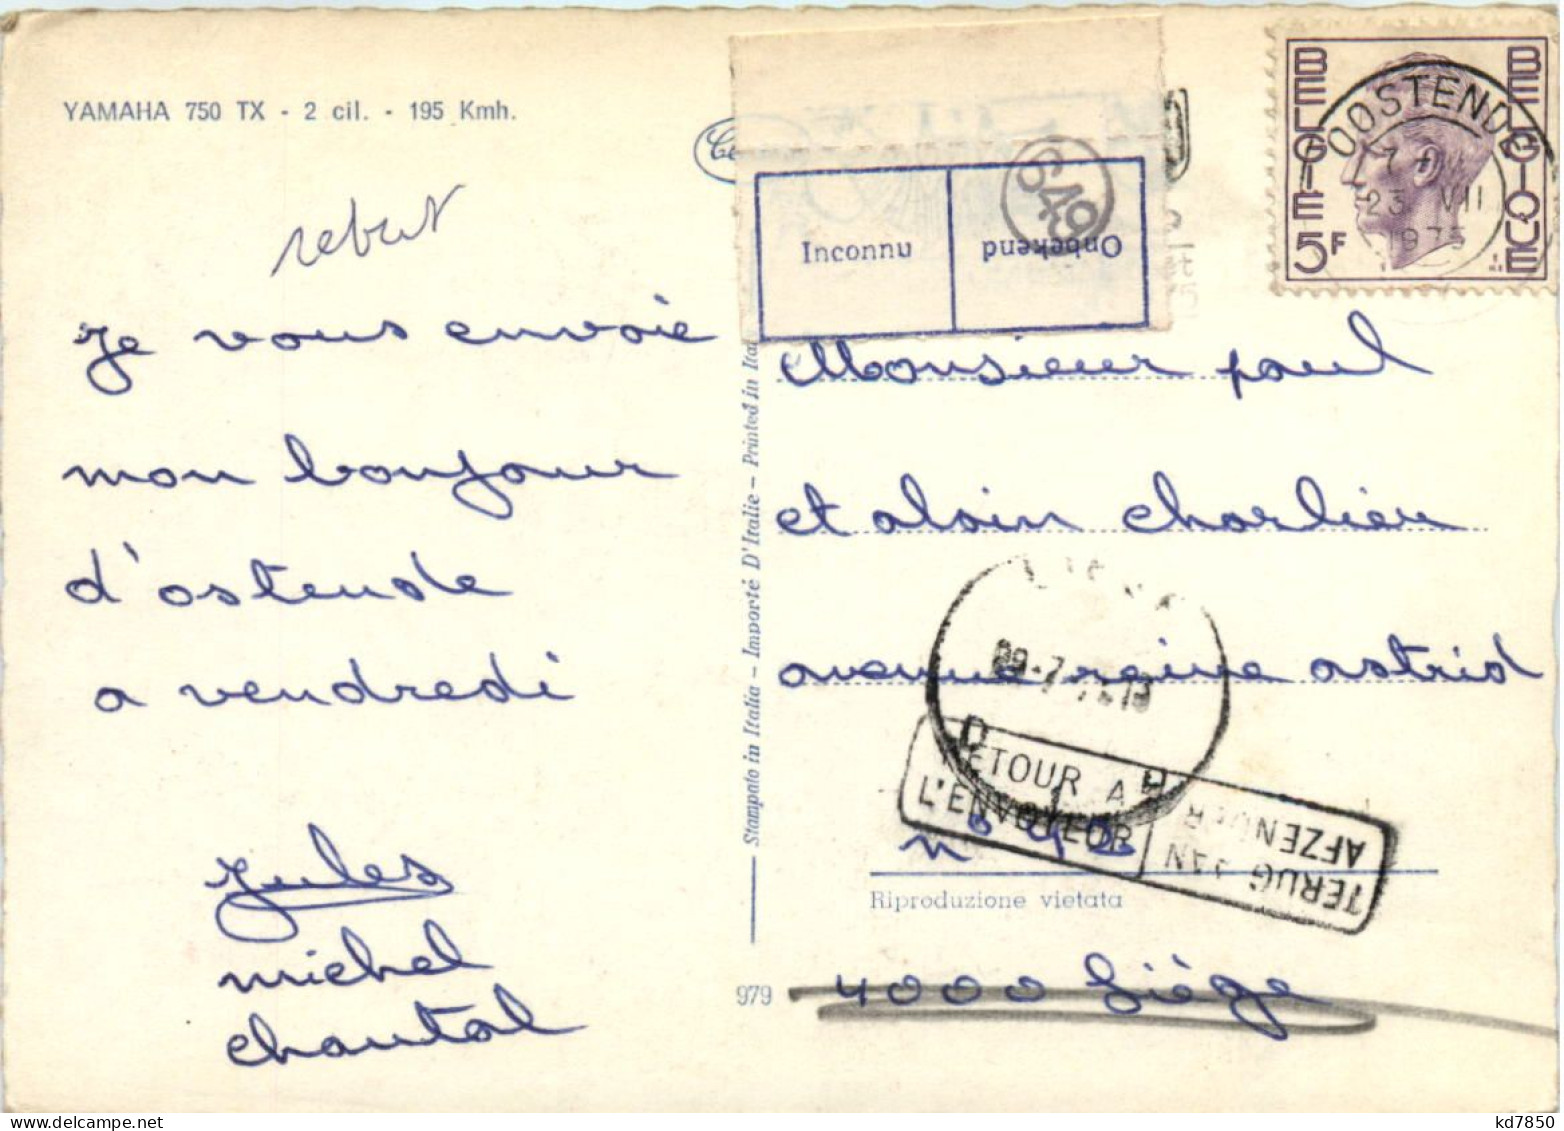 YAMAHA 750 TX - 2 cil. - 195 Kmh.
rebut
je vous envoie
mon bonjour
d'ostende
a vendredi
Jules
michel
chantal
Stampato in Italia - Importé D'Italie - Printed in Ital
979
Inconnu
Onbekend
649
BELGIE
BELGIQUE
5F
OOSTENDE
23 VII
1975
Monsieur paul
et alain charlier
avenue reine astrid
RETOUR A
L'ENVOYEUR
TERUG AAN
AFZENDER
Riproduzione vietata
4000 Liège
kd7850